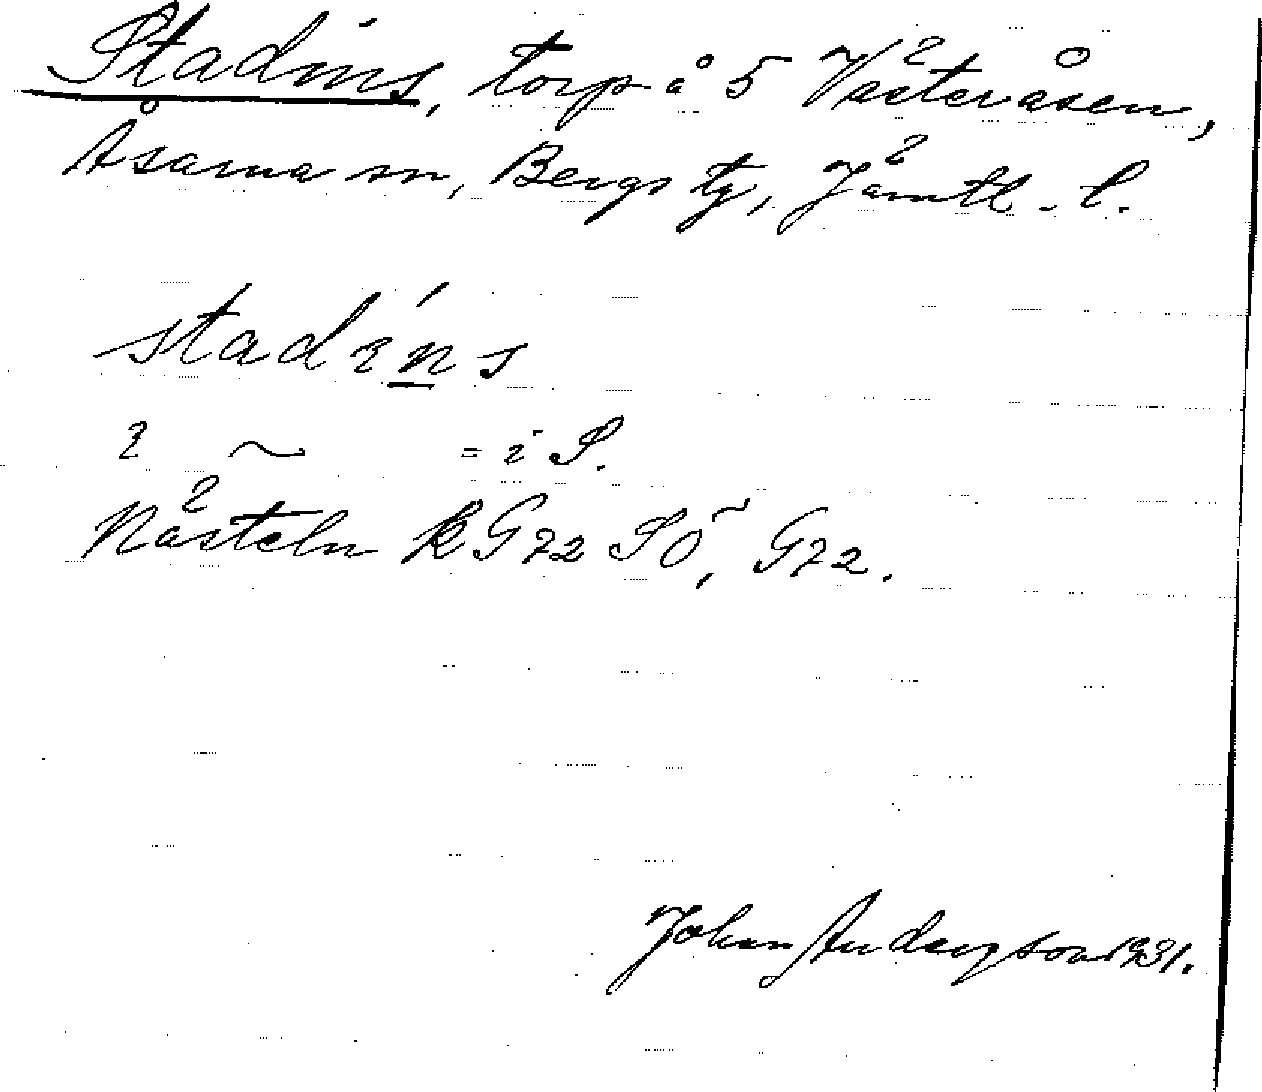 Stadins, torp å 5 Västeråsen,
Åsarna sn, Bergs tg, Jämtl. l.
stadi̱ns
~ = i S.
Nästeln k G72 SÖ, G72.
Johan Anderysson 1931.